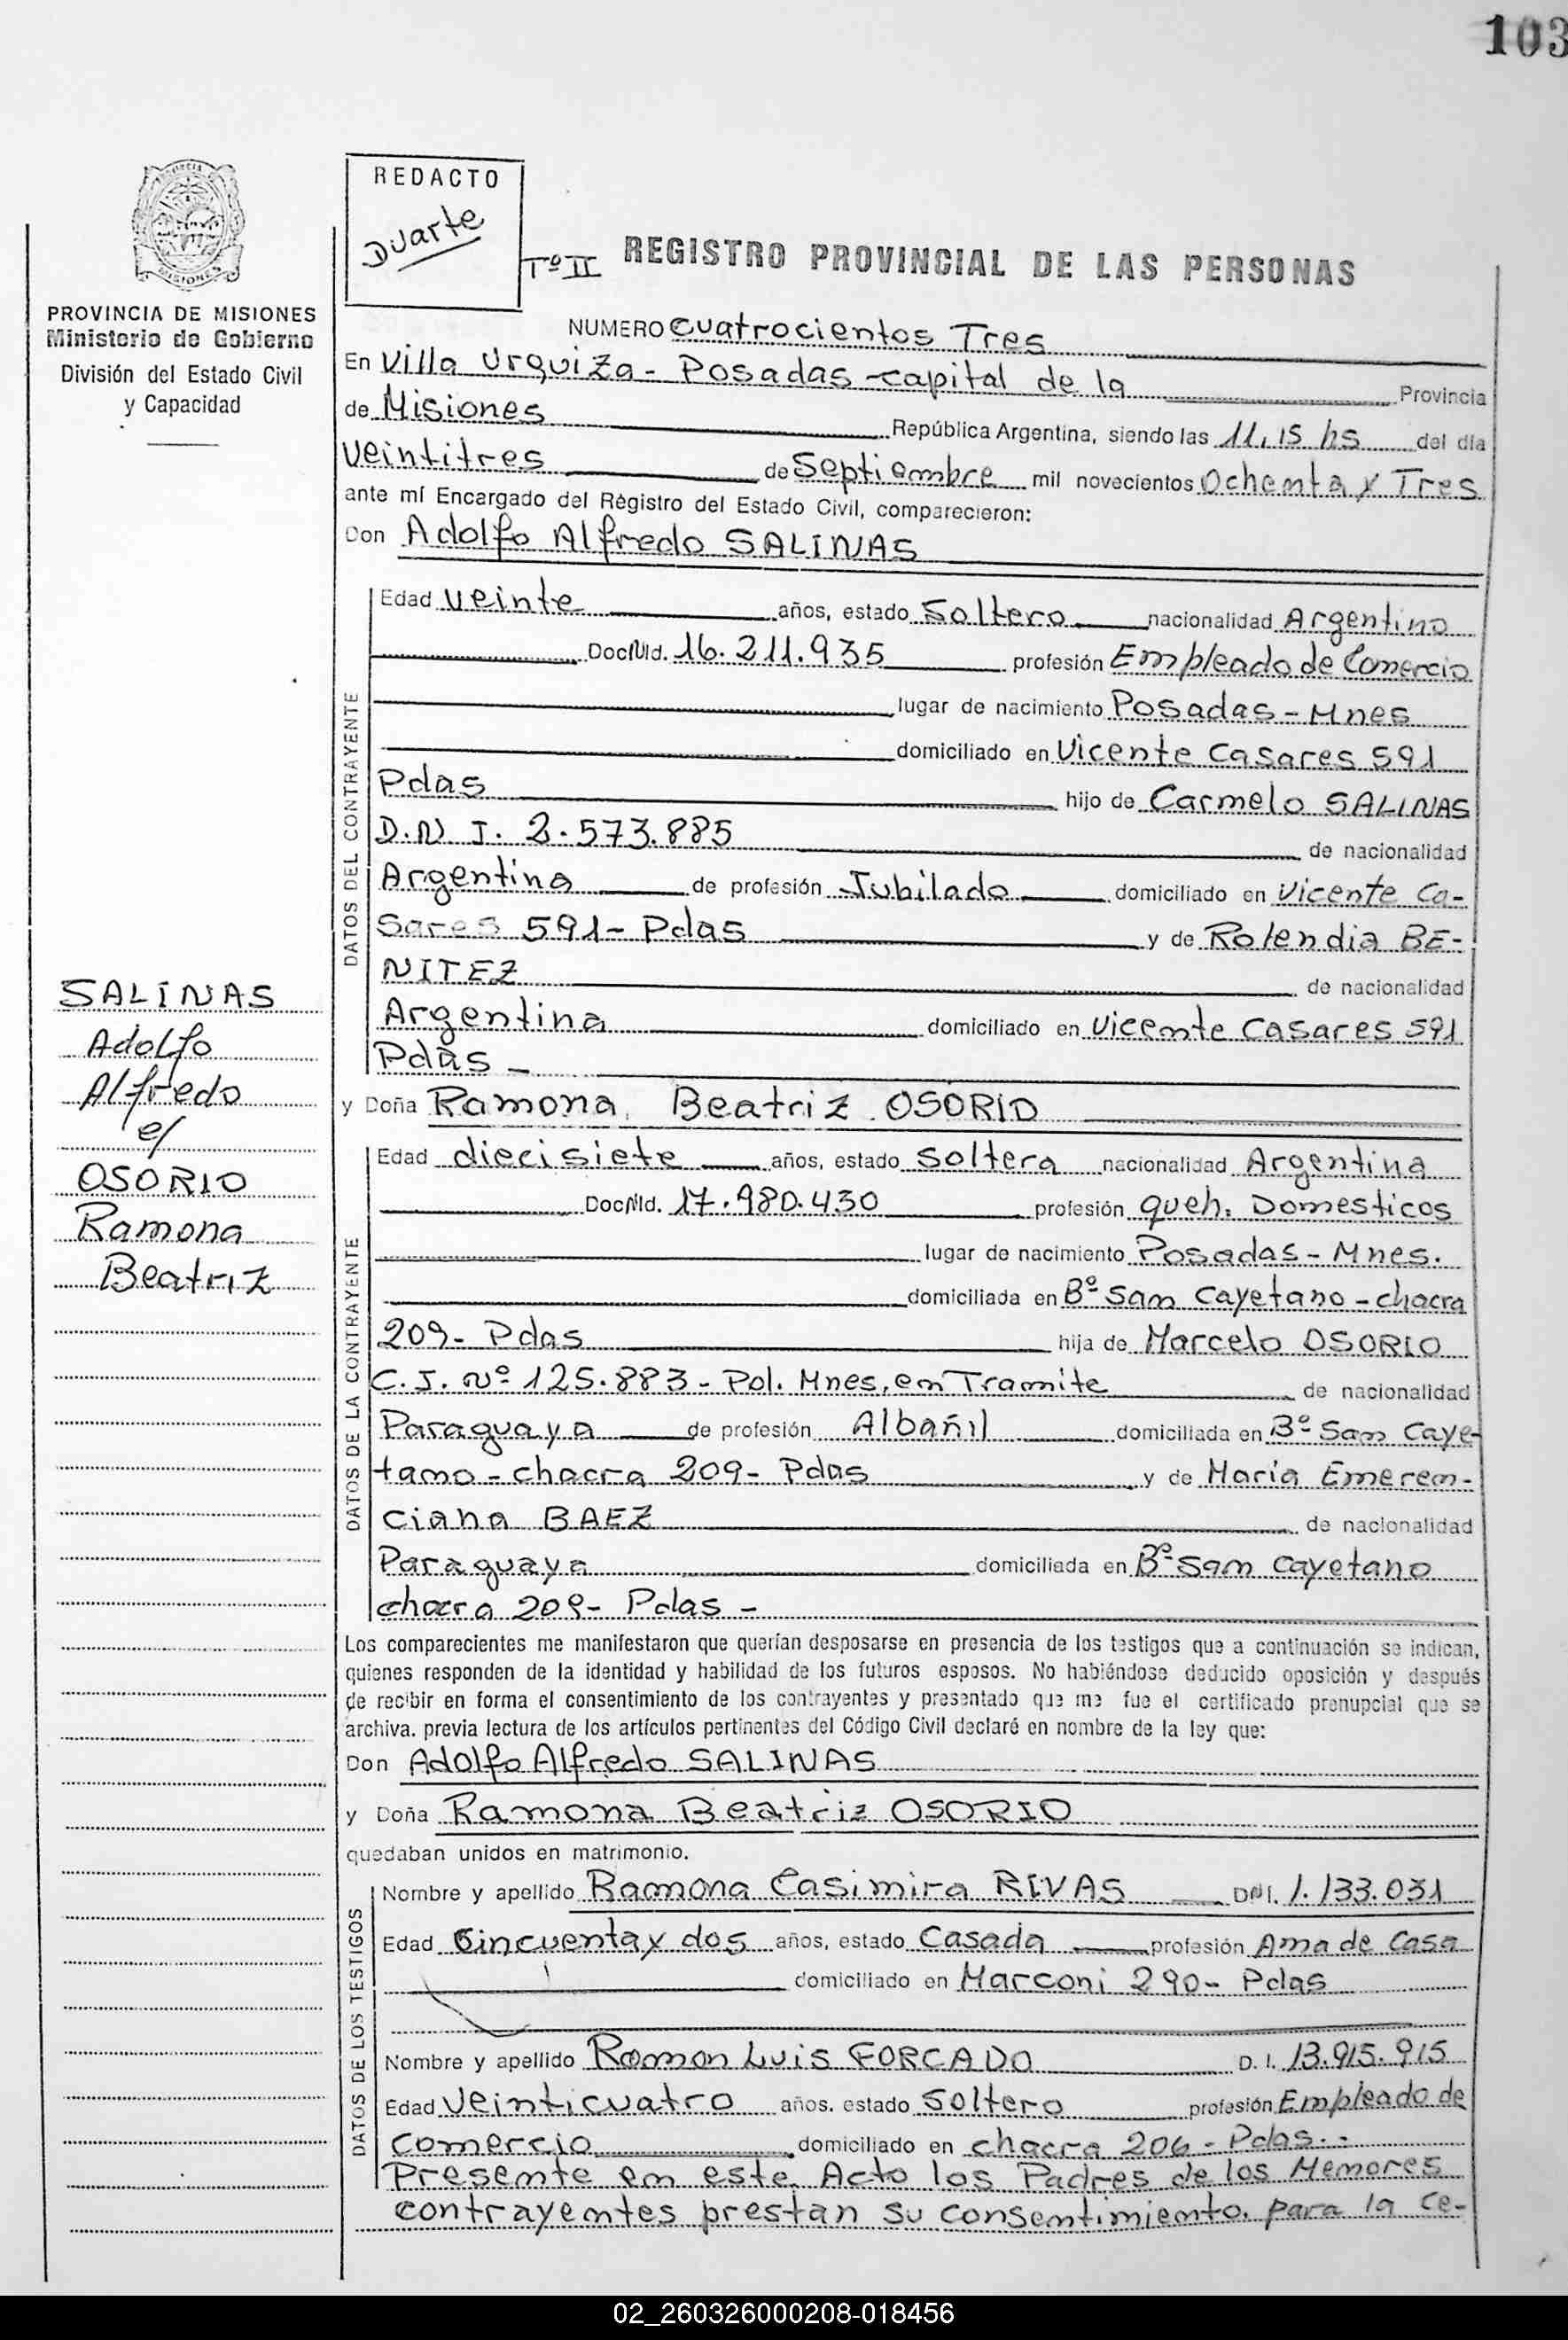 103
REDACTO
Duarte
Tº II REGISTRO PROVINCIAL DE LAS PERSONAS
MISIONES
PROVINCIA DE MISIONES
Ministerio de Gobierno
División del Estado Civil
y Capacidad
NUMERO cuatrocientos Tres
En Villa Urquiza - Posadas - capital de la Provincia
de Misiones República Argentina, siendo las 11,15 hs del día
veintitres de Septiembre mil novecientos Ochenta y Tres
ante mí Encargado del Registro del Estado Civil, comparecieron:
Don Adolfo Alfredo SALINAS
DATOS DEL CONTRAYENTE
Edad veinte años, estado Soltero nacionalidad Argentino
Doc/Nld. 16.211.935 profesión Empleado de Comercio
lugar de nacimiento Posadas - Mnes
domiciliado en Vicente Casares 591
Pdas hijo de Carmelo SALINAS
D.N I. 2.573.885 de nacionalidad
Argentina de profesión Jubilado domiciliado en Vicente Ca-
sares 591 - Pdas y de Rolendia BE-
NITEZ de nacionalidad
Argentina domiciliado en Vicente Casares 591
Pdas -
y Doña Ramona Beatriz OSORIO
SALINAS
Adolfo
Alfredo
c/
OSORIO
Ramona
Beatriz
DATOS DE LA CONTRAYENTE
Edad diecisiete años, estado Soltera nacionalidad Argentina
Doc/Nld. 17.980.430 profesión queh. Domesticos
lugar de nacimiento Posadas - Mnes.
domiciliada en Bº San Cayetano - chacra
209 - Pdas hija de Marcelo OSORIO
C.I. Nº 125.883 - Pol. Mnes, en Tramite de nacionalidad
Paraguaya de profesión Albañil domiciliada en Bº San Caye-
tano - chacra 209 - Pdas y de Maria Emeren-
ciana BAEZ de nacionalidad
Paraguaya domiciliada en Bº San Cayetano
chacra 209 - Pdas -
Los comparecientes me manifestaron que querían desposarse en presencia de los testigos que a continuación se indican,
quienes responden de la identidad y habilidad de los futuros esposos. No habiéndose deducido oposición y después
de recibir en forma el consentimiento de los contrayentes y presentado que me fue el certificado prenupcial que se
archiva. previa lectura de los artículos pertinentes del Código Civil declaré en nombre de la ley que:
Don Adolfo Alfredo SALINAS
y Doña Ramona Beatriz OSORIO
quedaban unidos en matrimonio.
DATOS DE LOS TESTIGOS
Nombre y apellido Ramona Casimira RIVAS DNI. 1.133.031
Edad Cincuenta y dos años, estado Casada profesión Ama de Casa
domiciliado en Marconi 290 - Pdas
Nombre y apellido Ramon Luis FORCADO D. I. 13.915.915
Edad Veinticuatro años. estado Soltero profesión Empleado de
Comercio domiciliado en chacra 206 - Pdas. -
Presente en este Acto los Padres de los Menores
contrayentes prestan su consentimiento, para la ce-
02_260326000208-018456